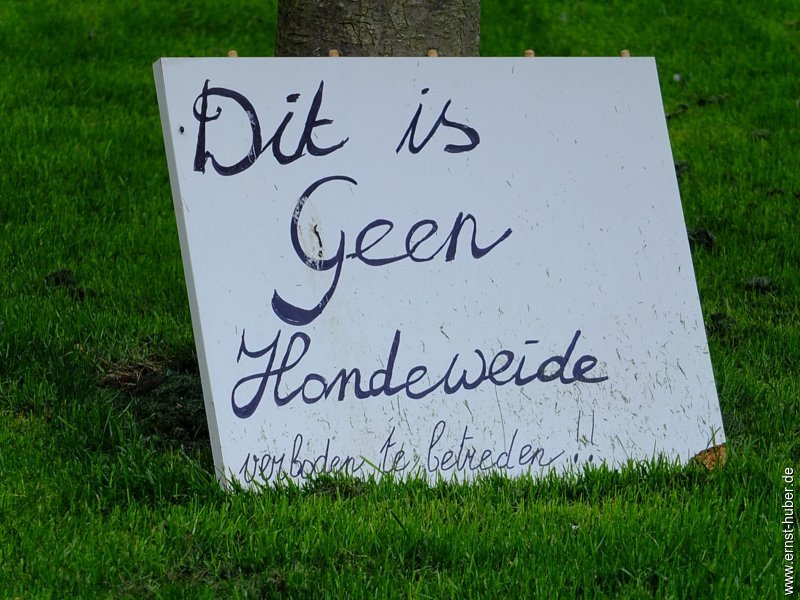 Dit is
Geen
Hondeweide
verboden te betreden!!
www.ernst-huber.de